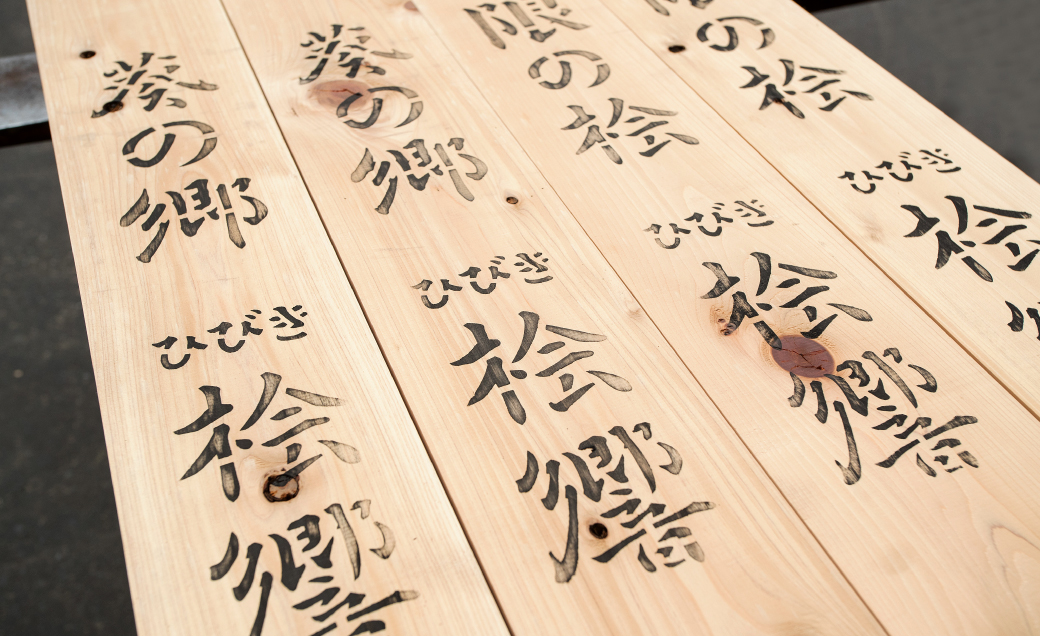 葵の郷
ひびき
桧響
葵の郷
ひびき
桧響
限の桧
ひびき
桧響
の桧
ひびき
桧